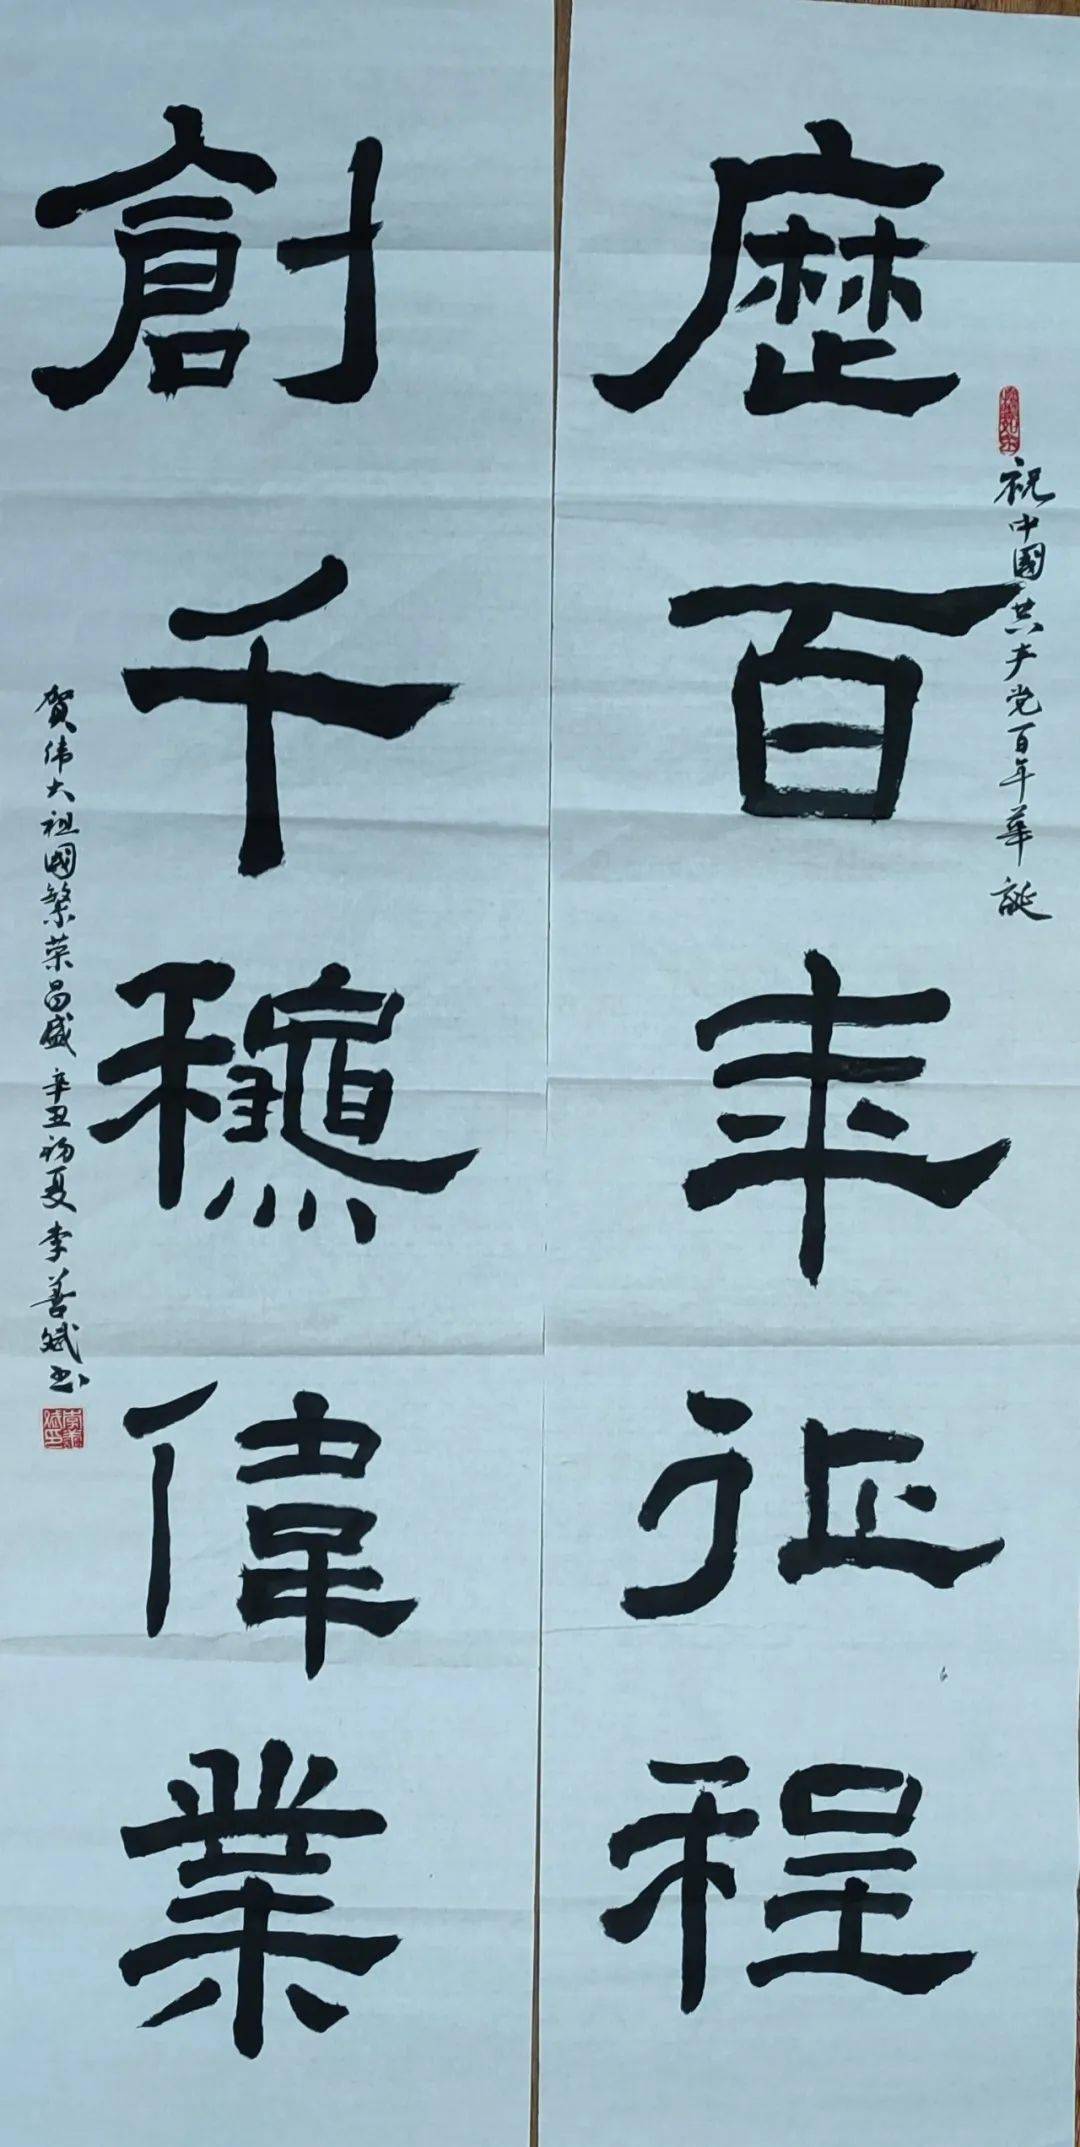 祝中國共产党百年華誕
歷百年征程
創千龝偉業
贺伟大祖國繁荣昌盛 辛丑初夏 李善斌书
李善斌印